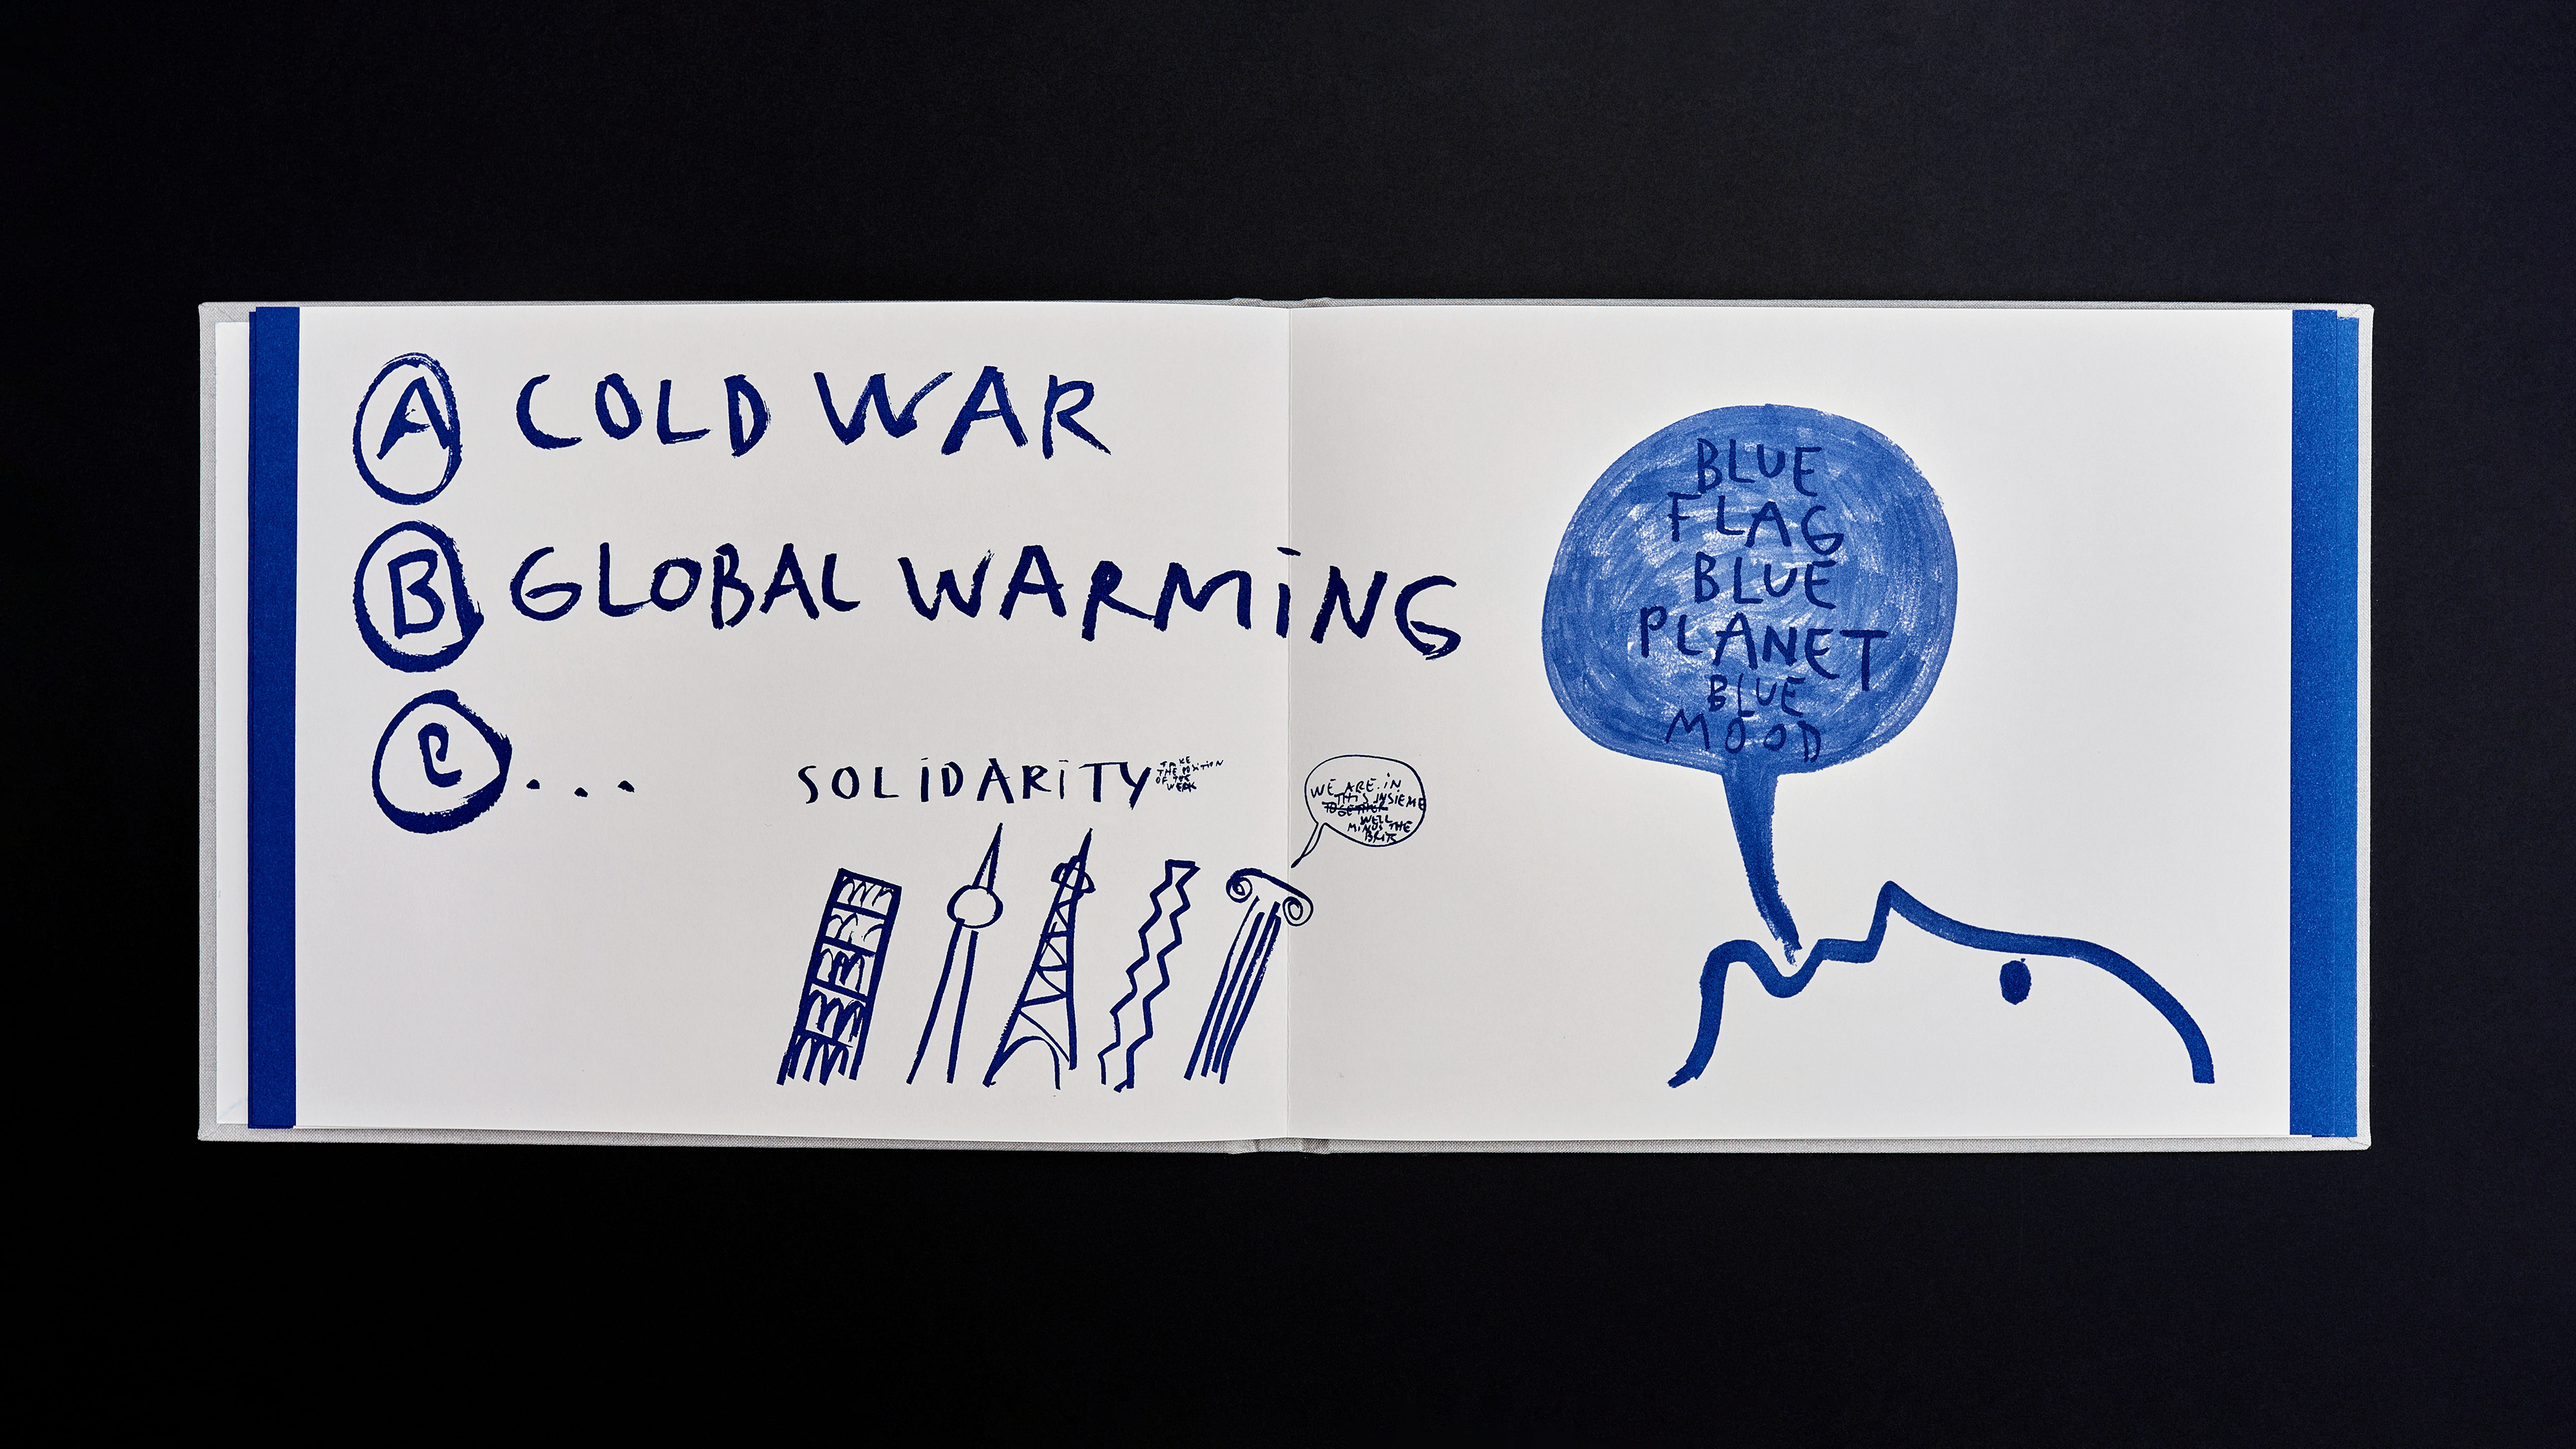 A COLD WAR
B GLOBAL WARMING
C ...
SOLIDARITY
TAKE
THE POSITION
OF THE
WEAK
WE ARE IN
THIS INSIEME
TOGETHER
WELL
MINUS THE
BRITS
BLUE
FLAG
BLUE
PLANET
BLUE
MOOD